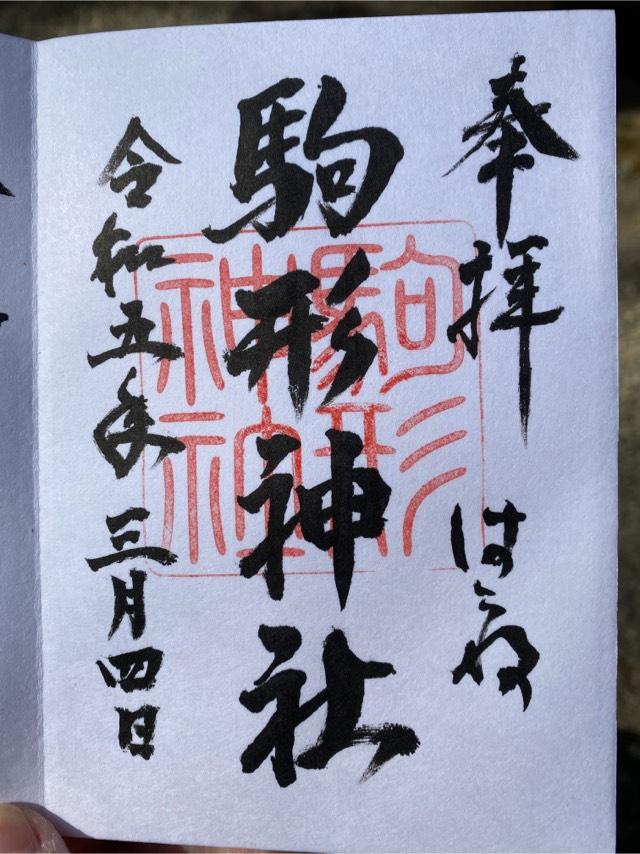 奉拝 はこね
駒形神社
令和五年三月四日
駒形
神社